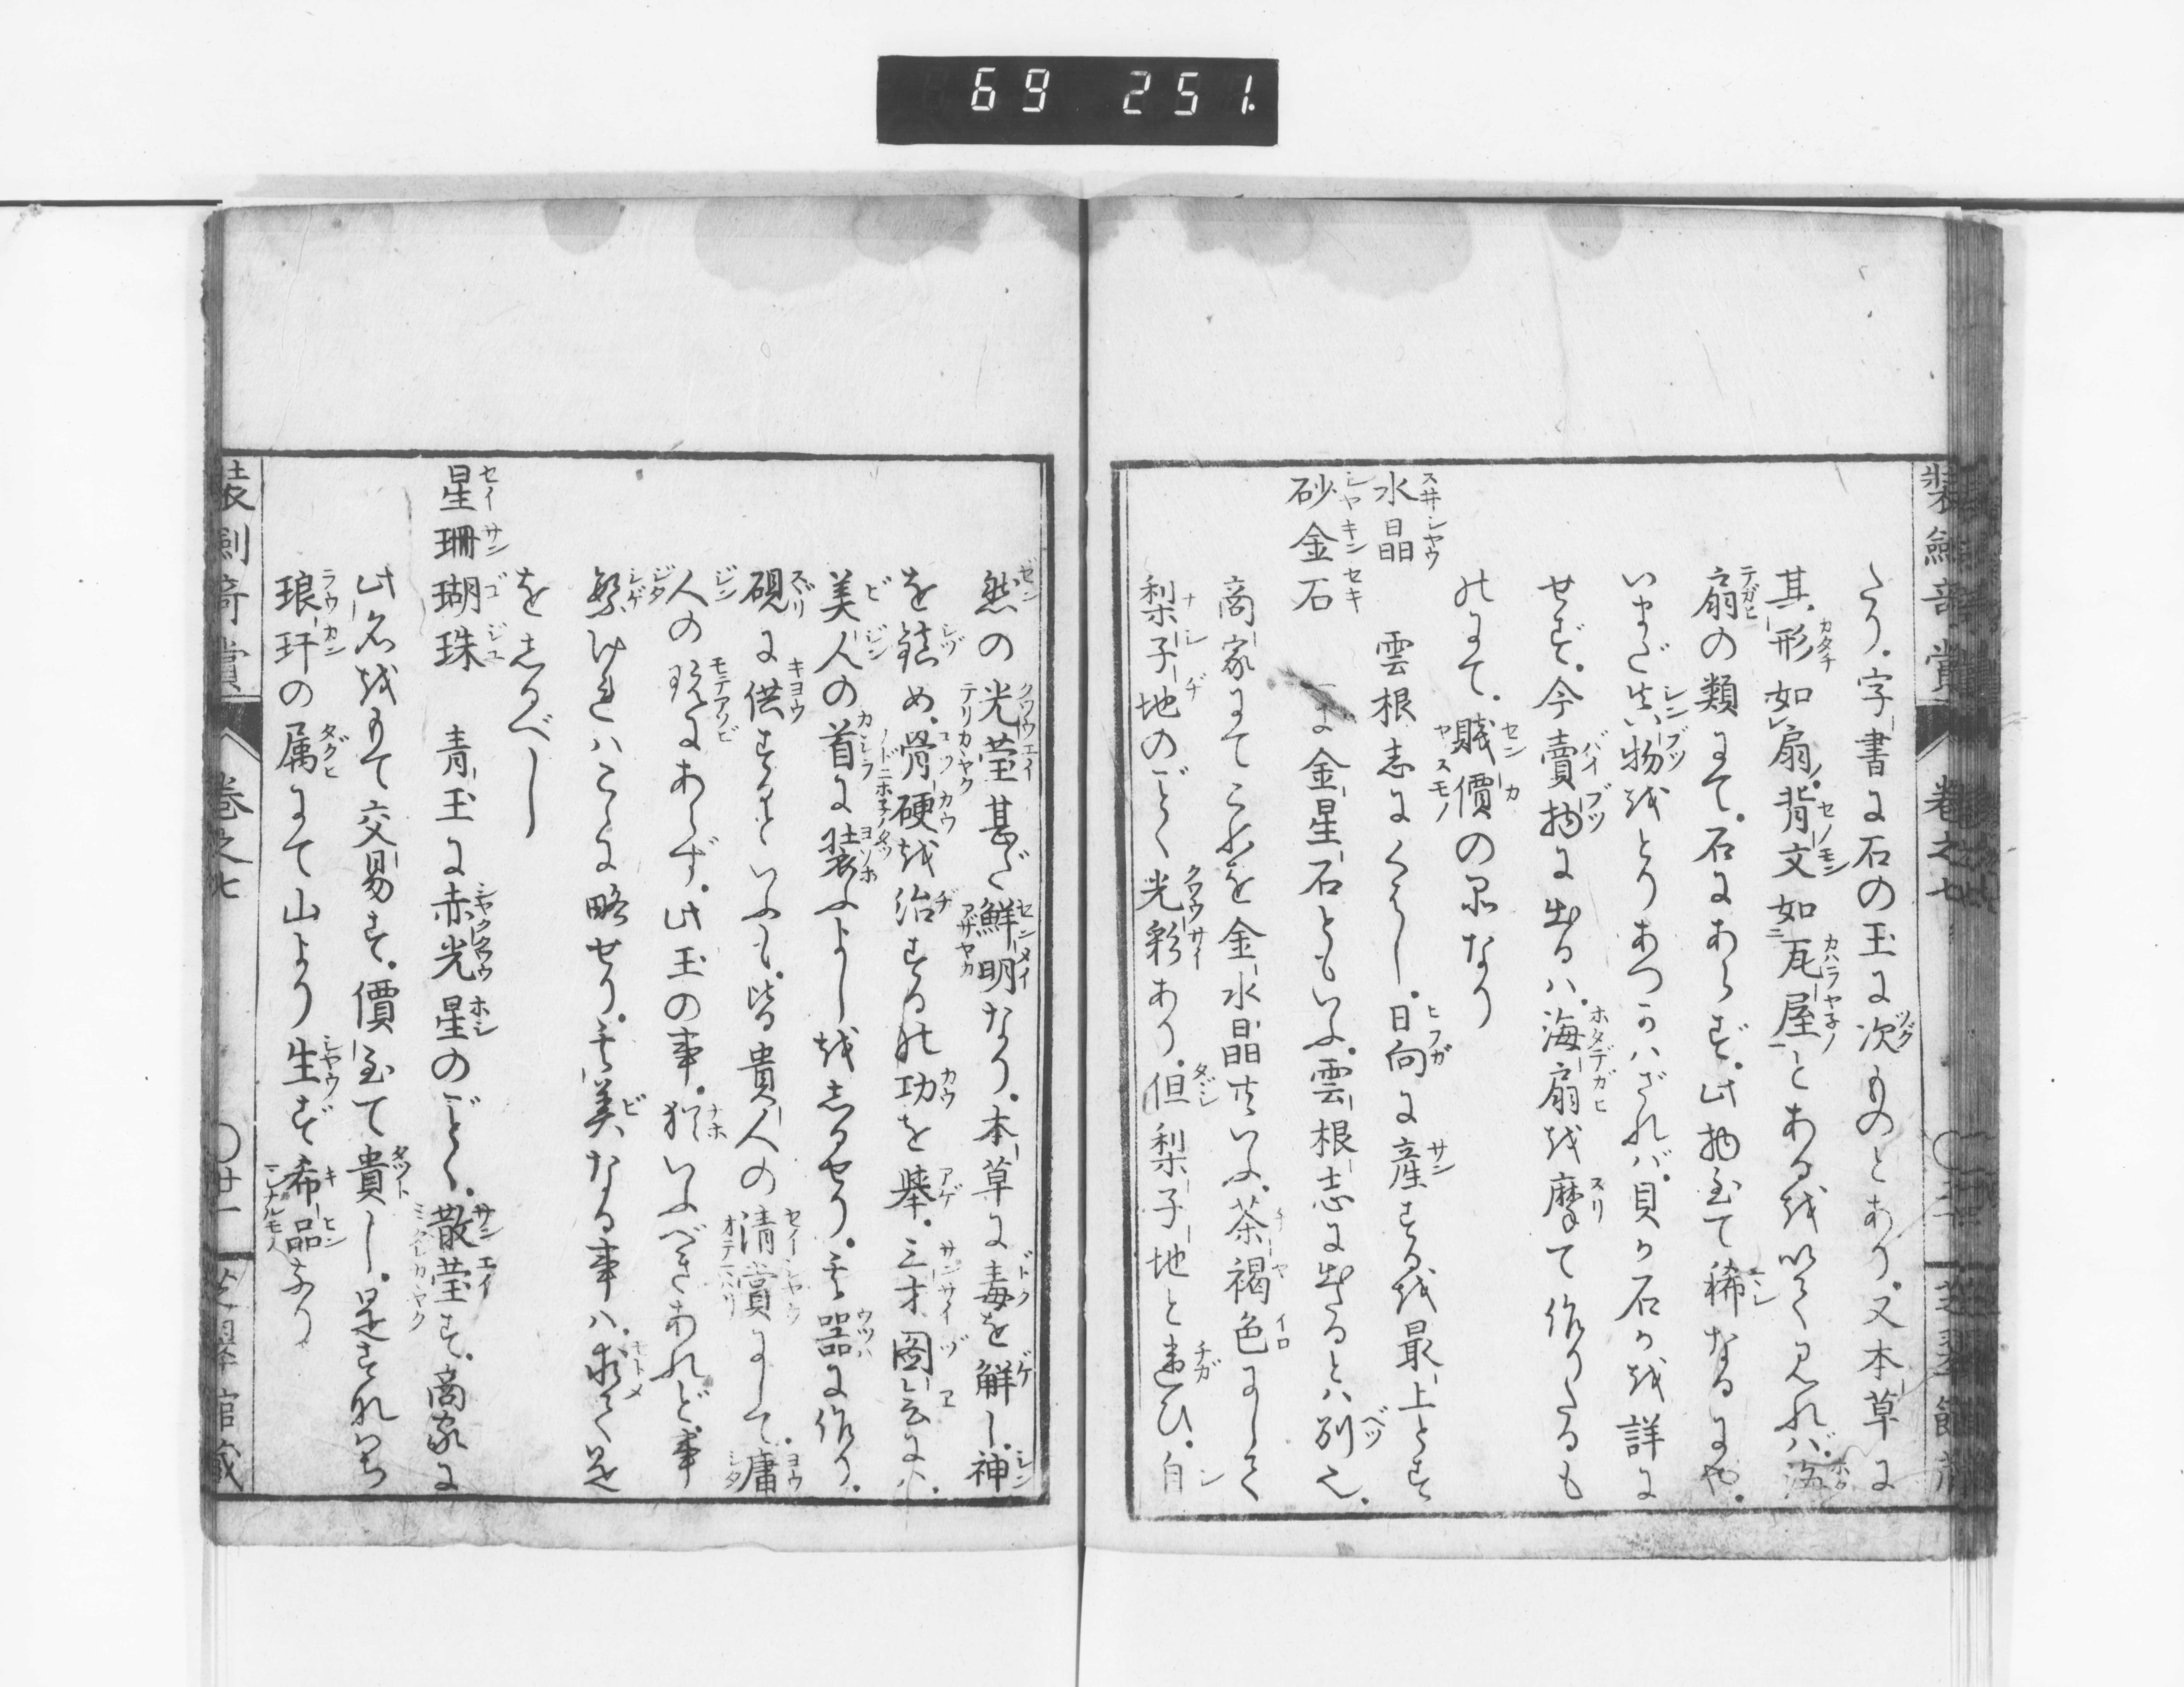 69 251.
たり。字書に石の玉に次ものとあり。又本草に
其形如レ扇。背文如二瓦屋一とある越以て見れバ。海
扇の類にて。石にあらず。此物至て稀なるにや。
いまだ其物越とりあつかハざれバ。貝か石か越詳に
せず。今賣物に出るハ。海扇越摩て作りたるも
のにて。賤價の品なり
水晶　雲根志にくハし。日向に産する越最上とす
砂金石　一に金星石ともいふ。雲根志に出たるとハ別也。
商家にてこれを金水晶共いふ。茶褐色にして
梨子地のごとく光彩あり。但梨子地と違ひ。自
然の光莹甚だ鮮明なり。本草に毒を解し。神
を鎮め。骨硬越治するの功を挙。三才図会にハ。
美人の首に装ふよし越志るせり。其器に作り。
硯に供するといふも。皆貴人の清賞にして。庸
人の玩にあらず。此玉の事。猶いふべきあれど。事
繁けれハこゝに略せり。其美なる事ハ。求て是
を志るべし
星珊瑚珠　青玉に赤光星のごとく。散莹す。商家に
此名越もて交易す。價至て貴し。是すなハち
琅玕の属にて山より生ず希品なり
装劍奇賞　巻之七　〇廿一　芝翠館蔵